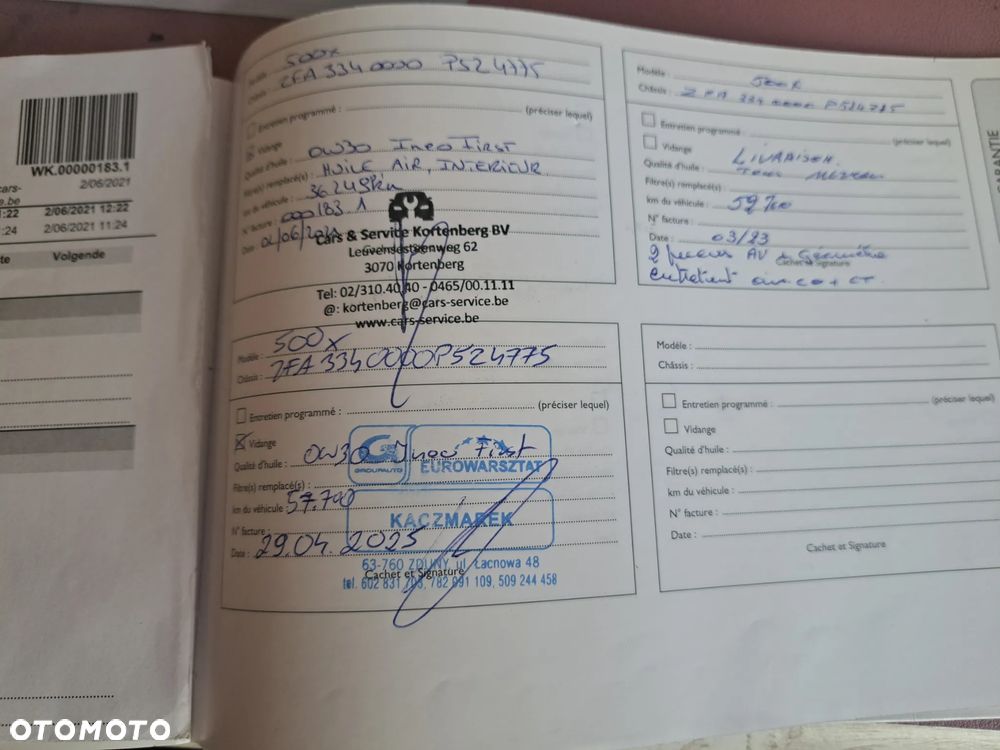 WK.00000183.1
cars-
.be
2/06/2021
1:22
2/06/2021 12:22
:24
2/06/2021 11:24
te
Volgende
Modèle : 500x
Châssis : ZFA 334 0000 P524775
Entretien programmé :
(préciser lequel)
Vidange
Qualité d'huile : 0W30 Ineo First
Filtre(s) remplacé(s) : HUILE, AIR, INTERIEUR
km du véhicule : 36248km
N° facture : 000183 1
Date : 02/06/2021
Cars & Service Kortenberg BV
Leuvensesteenweg 62
3070 Kortenberg
Tel: 02/310.40.40 - 0465/00.11.11
@: kortenberg@cars-service.be
www.cars-service.be
Modèle : 500x
Châssis : ZFA 334 0000P524775
Entretien programmé :
(préciser lequel)
Vidange
Qualité d'huile : 0W30 Ineo First
Filtre(s) remplacé(s) :
km du véhicule : 57.700
N° facture :
Date : 29.04.2025
Cachet et Signature
GROUPAUTO
EUROWARSZTAT
KACZMAREK
63-760 ZDUNY, ul. Łacnowa 48
509 244 458
Modèle : 500x
Châssis : ZFA 334 0000 P524775
Entretien programmé :
(préciser lequel)
Vidange
Qualité d'huile : LIVRAISON
Filtre(s) remplacé(s) :
km du véhicule :
N° facture :
Date : 03/23
2 pneus AV + Géométrie
Cachet et Signature
entretient
Modèle :
Châssis :
Entretien programmé :
(préciser lequel)
Vidange
Qualité d'huile :
Filtre(s) remplacé(s) :
km du véhicule :
N° facture :
Date :
Cachet et Signature
GARANTIE
OTOMOTO